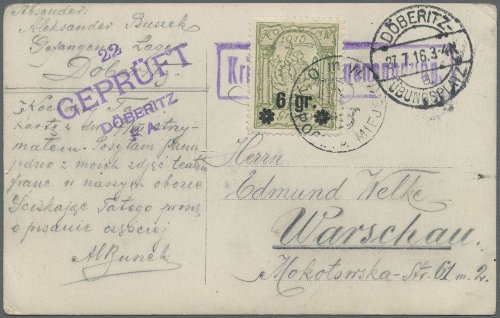 Absender:
Aleksander Buszek
Gefangen. Lager
Döberitz
22
GEPRÜFT
DÖBERITZ
F.A.
Kochany
Kartę z
małem. Posyłam Panu
jedno z moich zdjęć teatru
franc. w naszym obozie
Ściskając Całego proszę
o pisanie częściej
ABuszek
6 gr.
POCZTA MIEJ
DÖBERITZ
21.7.16.3-4N.
ÜBUNGSPLATZ
Herrn
Edmund Welke
Warschau
Mokotowska-Str. 61 m. 2.